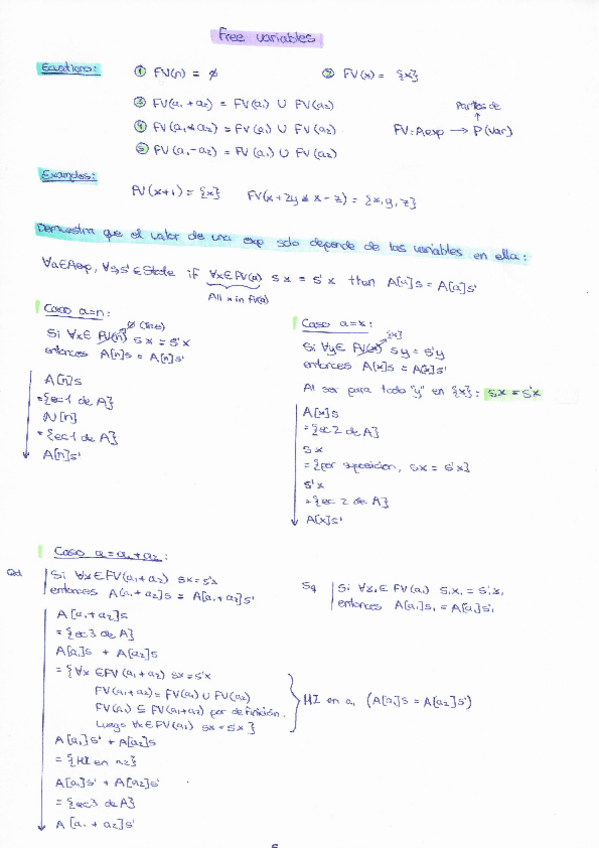 Free variables
Ecuations:
① FV(n) = ∅ ② FV(x) = {x}
③ FV(a₁ + a₂) = FV(a₁) ∪ FV(a₂) Partes de
④ FV(a₁ * a₂) = FV(a₁) ∪ FV(a₂) FV: Aexp → P(Var)
⑤ FV(a₁ - a₂) = FV(a₁) ∪ FV(a₂)
Examples:
FV(x+1) = {x} FV(x + 2y * x - z) = {x, y, z}
Demuestra que el valor de una exp solo depende de las variables en ella:
∀a∈Aexp, ∀s,s'∈State if ∀x∈FV(a) s x = s' x then A[a]s = A[a]s'
All x in FV(a)
Caso a=n:
∅ (tres)
Si ∀x∈ FV(n) s x = s' x
entonces A[n]s = A[n]s'
A[n]s
= {ec1 de A}
N[n]
= {ec1 de A}
A[n]s'
Caso a=x:
{x}
Si ∀y∈ FV(x) s y = s' y
entonces A[x]s = A[x]s'
Al ser para todo "y" en {x}: s x = s' x
A[x]s
= {ec 2 de A}
s x
= {por suposición, s x = s' x}
s' x
= {ec 2 de A}
A[x]s'
Caso a = a₁ + a₂:
Si ∀x ∈ FV(a₁ + a₂) s x = s' x
entonces A[a₁ + a₂]s = A[a₁ + a₂]s'
Si ∀x₁ ∈ FV(a₁) s₁ x₁ = s'₁ x₁
entonces A[a₁]s₁ = A[a₁]s'₁
A[a₁ + a₂]s
= {ec3 de A}
A[a₁]s + A[a₂]s
= {∀x ∈ FV(a₁ + a₂) s x = s' x
FV(a₁ + a₂) = FV(a₁) ∪ FV(a₂)
FV(a₁) ⊆ FV(a₁+a₂) por definición.
Luego ∀x ∈ FV(a₁) s x = s' x}
HI en a₁ (A[a₁]s = A[a₂]s')
A[a₁]s' + A[a₂]s
= {HI en a₂}
A[a₁]s' + A[a₂]s'
= {ec3 de A}
A[a₁ + a₂]s'